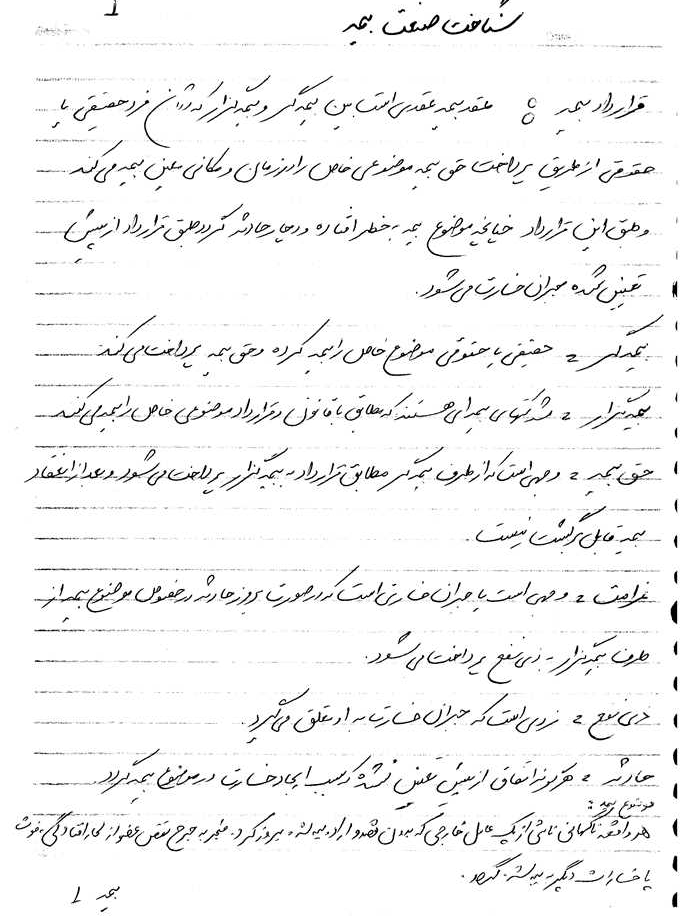 1
شناخت صنعت بیمه
قرارداد بیمه : عقد بیمه عقدی است بین بیمه گر و بیمه گزار که در آن فرد حقیقی یا
حقوقی از طریق پرداخت حق بیمه موضوعی خاص را در زمان و مکانی معین بیمه می کند
و طبق این قرارداد چنانچه موضوع بیمه به خطر افتاده و دچار حادثه گردد طبق قرارداد از پیش
تعیین شده جبران خسارت می شود.
بیمه گر = حقیقی یا حقوقی موضوع خاص را بیمه کرده و حق بیمه پرداخت می کند.
بیمه گزار = شرکتهای بیمه ای هستند که مطابق با قانون و قرارداد موضوعی خاص را بیمه می کنند
حق بیمه = وجهی است که از طرف بیمه گر مطابق قرارداد به بیمه گزار پرداخت می شود و بعد از انعقاد
بیمه قابل برگشت نیست.
غرامت = وجهی است یا جبران خسارتی است که در صورت بروز حادثه در خصوص موضوع بیمه از
طرف بیمه گزار به ذی نفع پرداخت می شود.
ذی نفع = فردی است که جبران خسارت به او تعلق می گیرد.
حادثه = هر گونه اتفاق از پیش تعیین نشده که سبب ایجاد خسارت در موضوع بیمه گردد.
موضوع بیمه :
هر واقعه ناگهانی ناشی از یک عامل خارجی که بدون قصد و اراده بیمه شده بروز کرد. منجر به جرح نقص عضو از کار افتادگی، فوت
یا خسارات دیگر به بیمه شده گردد.
بیمه 1